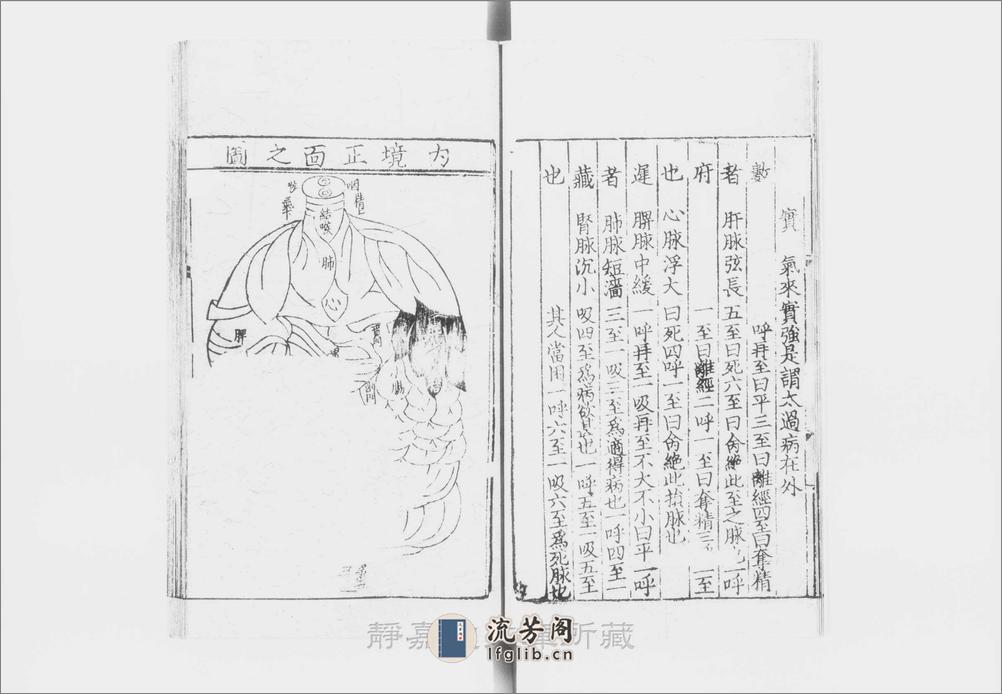 實 氣來實強是謂太過病在外
數 呼再至曰平三至曰離經四至曰奪精
者 肝脉弦長 五至曰死六至曰命絕此至之脉也一呼
府 一至曰離經二呼一至曰奪精三 一至
也 心脉浮大 曰死四呼一至曰命絕此損脉也
遲 脾脉中緩 一呼再至一吸再至不大不小曰平一呼
者 肺脉短濇 三至一吸三至爲適得病也一呼四至一
藏 腎脉沉小 吸四至爲病欲甚也一呼五至一吸五至
也 其人當用一呼六至一吸六至爲死脉也
内境正面之圖
咽
結喉
肺
心
脾
腸
靜嘉 所藏
流芳阁
lfglib.cn